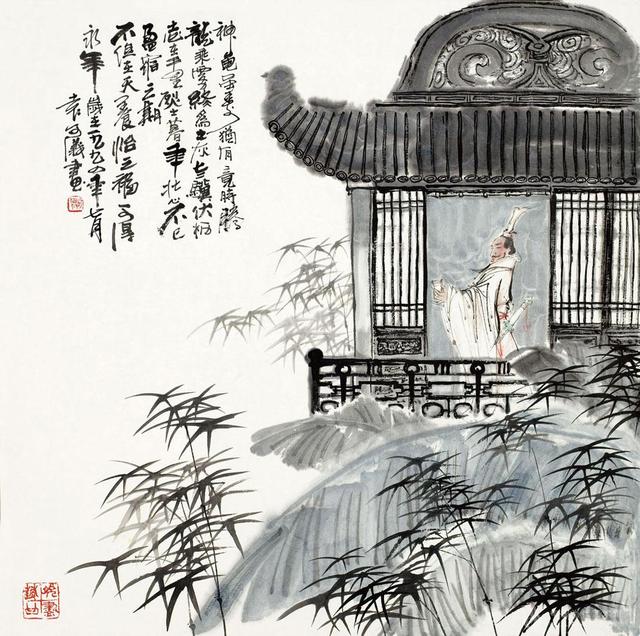 神龜雖壽猶有竟時騰
龍乘霧終為土灰老驥伏枥
志在千里烈士暮年壯心不已
盈縮之期
不但在天養怡之福可得
永年 歲在一九九四年七月
袁可儀畫